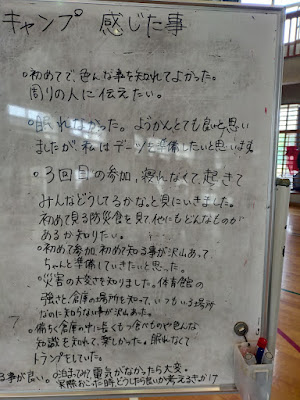 キャンプ 感じた事
○初めてで色んな事を知れてよかった。
周りの人に伝えたい。
○眠れなかった。ようかんとても良いと思い
ましたが、私はデーツを準備したいと思います
○3回目の参加、寝れなくて、起きて
みんなどうしてるかな、と見にいきました。
初めて見る防災食を見て、他にもどんなものが
あるか知りたい。
○初めて参加、初めて知る事が沢山あって
ちゃんと準備していきたいと思った。
○災害の大変さを知りました。体育館の
強さと、倉庫の場所を知って、いつもいる場所
なのに知らない事が沢山あった。
○備ちく倉庫の中に長くもつ食べものや色んな
知識を知れて、楽しかった。眠れなくて
トランプをしていた。
事が良い。○泊まってみて電気がなかったら大変。
実際おこった時、どうしたら良いか考えるきっかけ